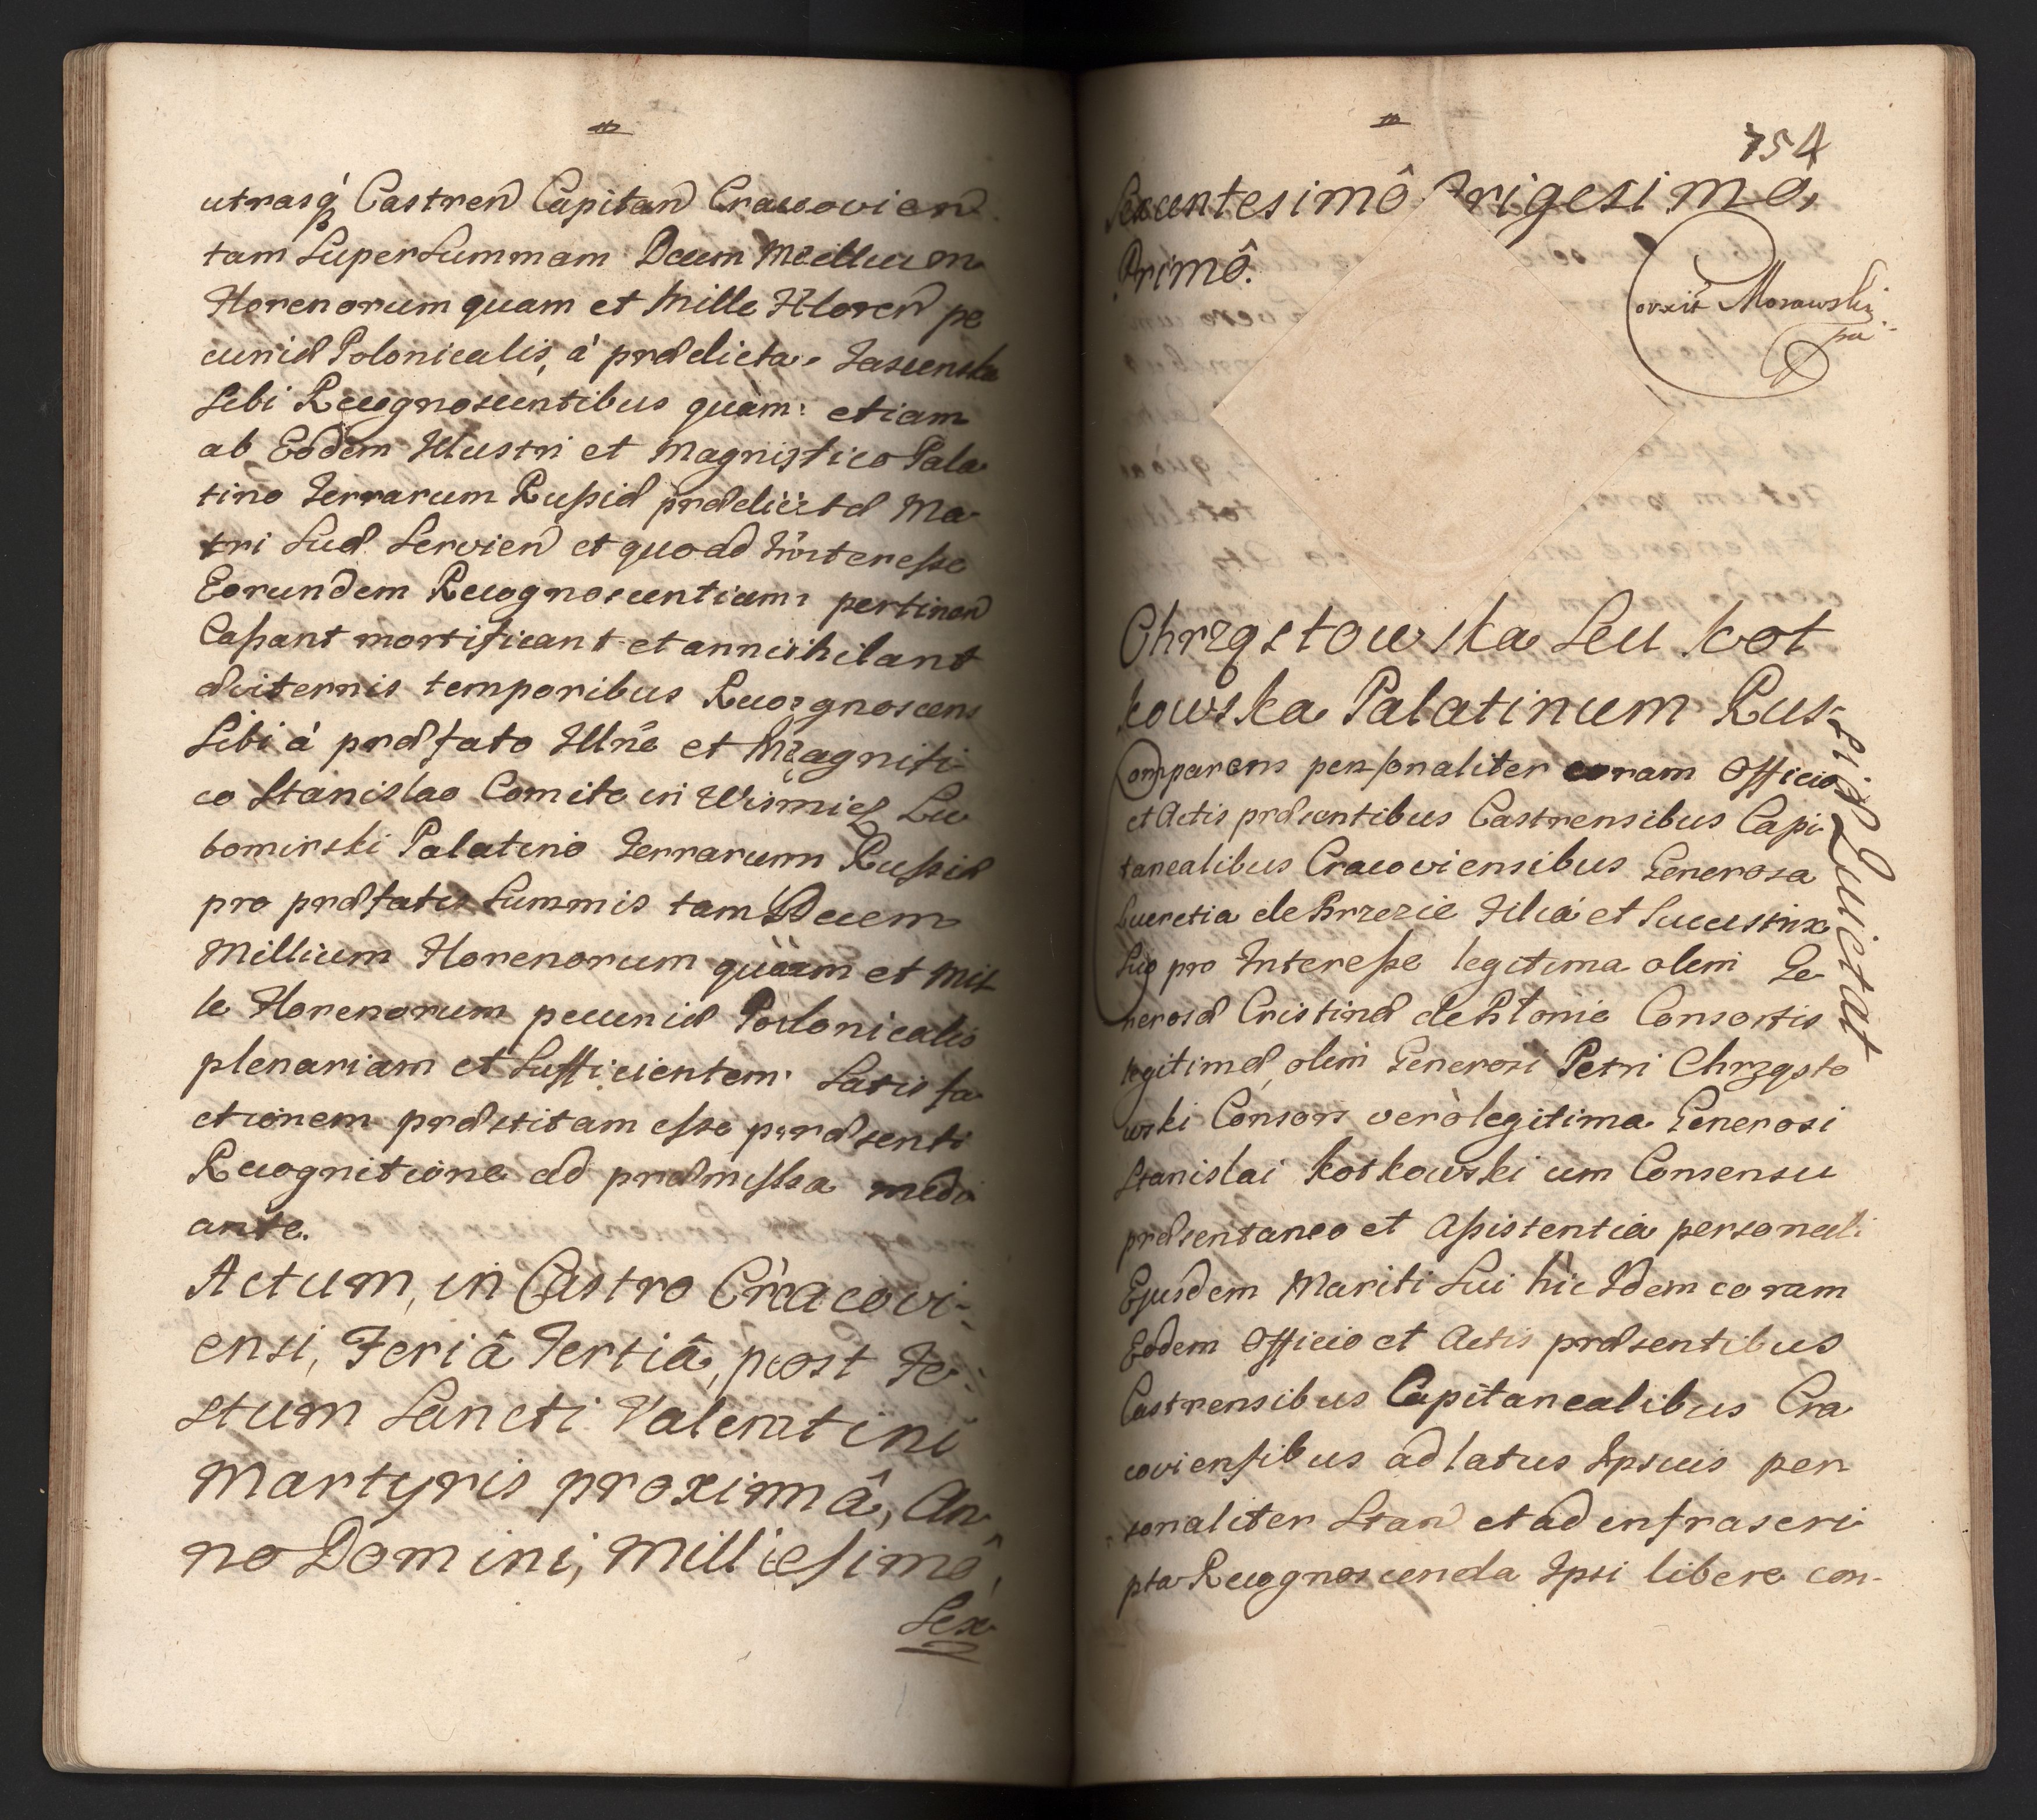 utrasq́ Castren Capitan Cracovien
tam Super Summam Decem Millium
Florenorum quam et Mille Floren pe
cuniæ Polonicalis, á prædicta
Sibi Recognoscentibus quàm: etiam
ab Eodem Illustri et Magnifico Pala
tino Terrarum Rußiæ prædictæ Ma
tri Suæ Servien et quoad Interesse
Eorundem Recognoscentium: pertinen
Caßant mortificant et annihilant
æviternis temporibus Recognoscens
Sibi á præfato Illrẽ et Magnifi
co Stanislao Comite in Wisnicz Lu
bomirski Palatino Terrarum Rußiæ
pro præfatis Summis tam Decem
Millium Florenorum quàm et Mil
le Florenorum pecuniæ Polonicalis
plenariam et Sufficientem Satisfa
ctionem præstitam esse præsenti
Recognitione ad præmissa medi
ante.
Actum, in Castro Cracovi-
ensi, Feriâ Tertiâ, post Fe-
stum Sancti Valentini
Martyris proximâ, An
no Domini, Millesimô,
Sex
754
Sexcentesimô Trigesimô,
Primô.
Corxit Morawski
Chrząstowska Seu Kot
kowska Palatinum Rus-
siæ Quietat
Comparens personaliter coram Officio
et Actis præsentibus Castrensibus Capi
tanealibus Cracoviensibus Generosa
Lucretia de Brzezie Filia et Successrix
Suo pro Interesse legitima olim Ge
nerosæ Cristinæ de Blonie Consortis
legitimæ, olim Generosi Petri Chrząsto
wski Consors verò legitima Generosi
Stanislai Kotkowski cum Consensu
præsentaneo et Aßistentia personali
Ejusdem Mariti Sui hic Idem coram
Eodem Officio et Actis præsentibus
Castrensibus Capitanealibus Cra
coviensibus ad latus Ipsius per
sonaliter Stan et ad infrascri
pta Recognoscenda Ipsi libere con-